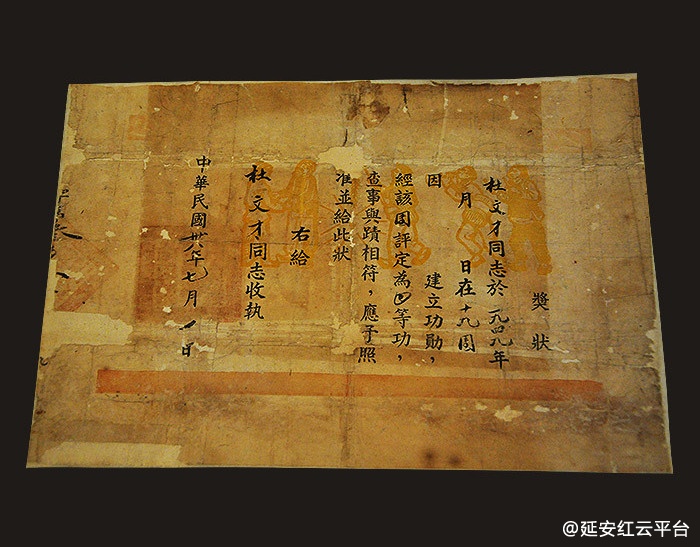 獎狀
杜文才同志於一九四九年
月 日在十九團
因 建立功勛，
經該團評定為四等功，
查事與蹟相符，應予照
准並給此狀
右給
杜文才同志收執
中華民國卅八年七月 日
@延安红云平台